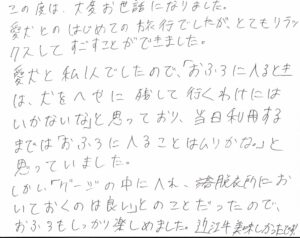 この度は、大変お世話になりました。
愛犬とのはじめての旅行でしたが、とてもリラッ
クスしてすごすことができました。
愛犬と私1人でしたので、「おふろに入るときは
は、犬をへやに残して行くわけには
いかないな」と思っており、当日利用する
までは「おふろに入ることはムリかな。」と
思っていました。
しかし「ゲージの中に入れ、脱衣所にお
いておくのは良い」とのことだったので、
おふろもしっかり楽しめました。近江牛美味しかったです。